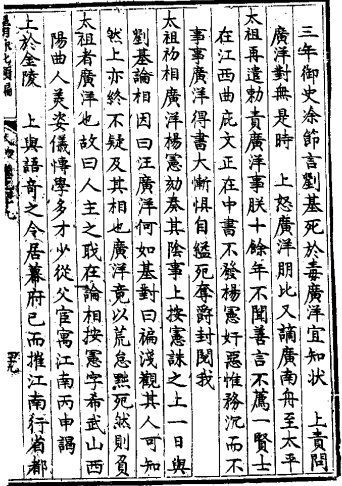 三年御史涂節言劉基死於毒廣洋宜知狀　上責問
廣洋對無是時　上怒廣洋朋比又謫廣南舟至太平
太祖再遣勅責廣洋事朕十餘年不聞善言不薦一賢士
在江西曲庇文正在中書不發楊憲奸惡惟務沉而不
事事廣洋得書大慚惧自縊死奪爵封聞我
太祖初相廣洋楊憲劾奏其陰事上按憲誅之上一日與
劉基論相因曰汪廣洋何如基對曰褊淺觀其人可知
然上亦終不疑及其相也廣洋竟以荒怠黜死然則負
太祖者廣洋也故曰人主之職在論相按憲字希武山西
陽曲人美姿儀博學多才少從父宦寓江南丙申謁
上於金陵　上與語竒之令居幕府已而擢江南行省都